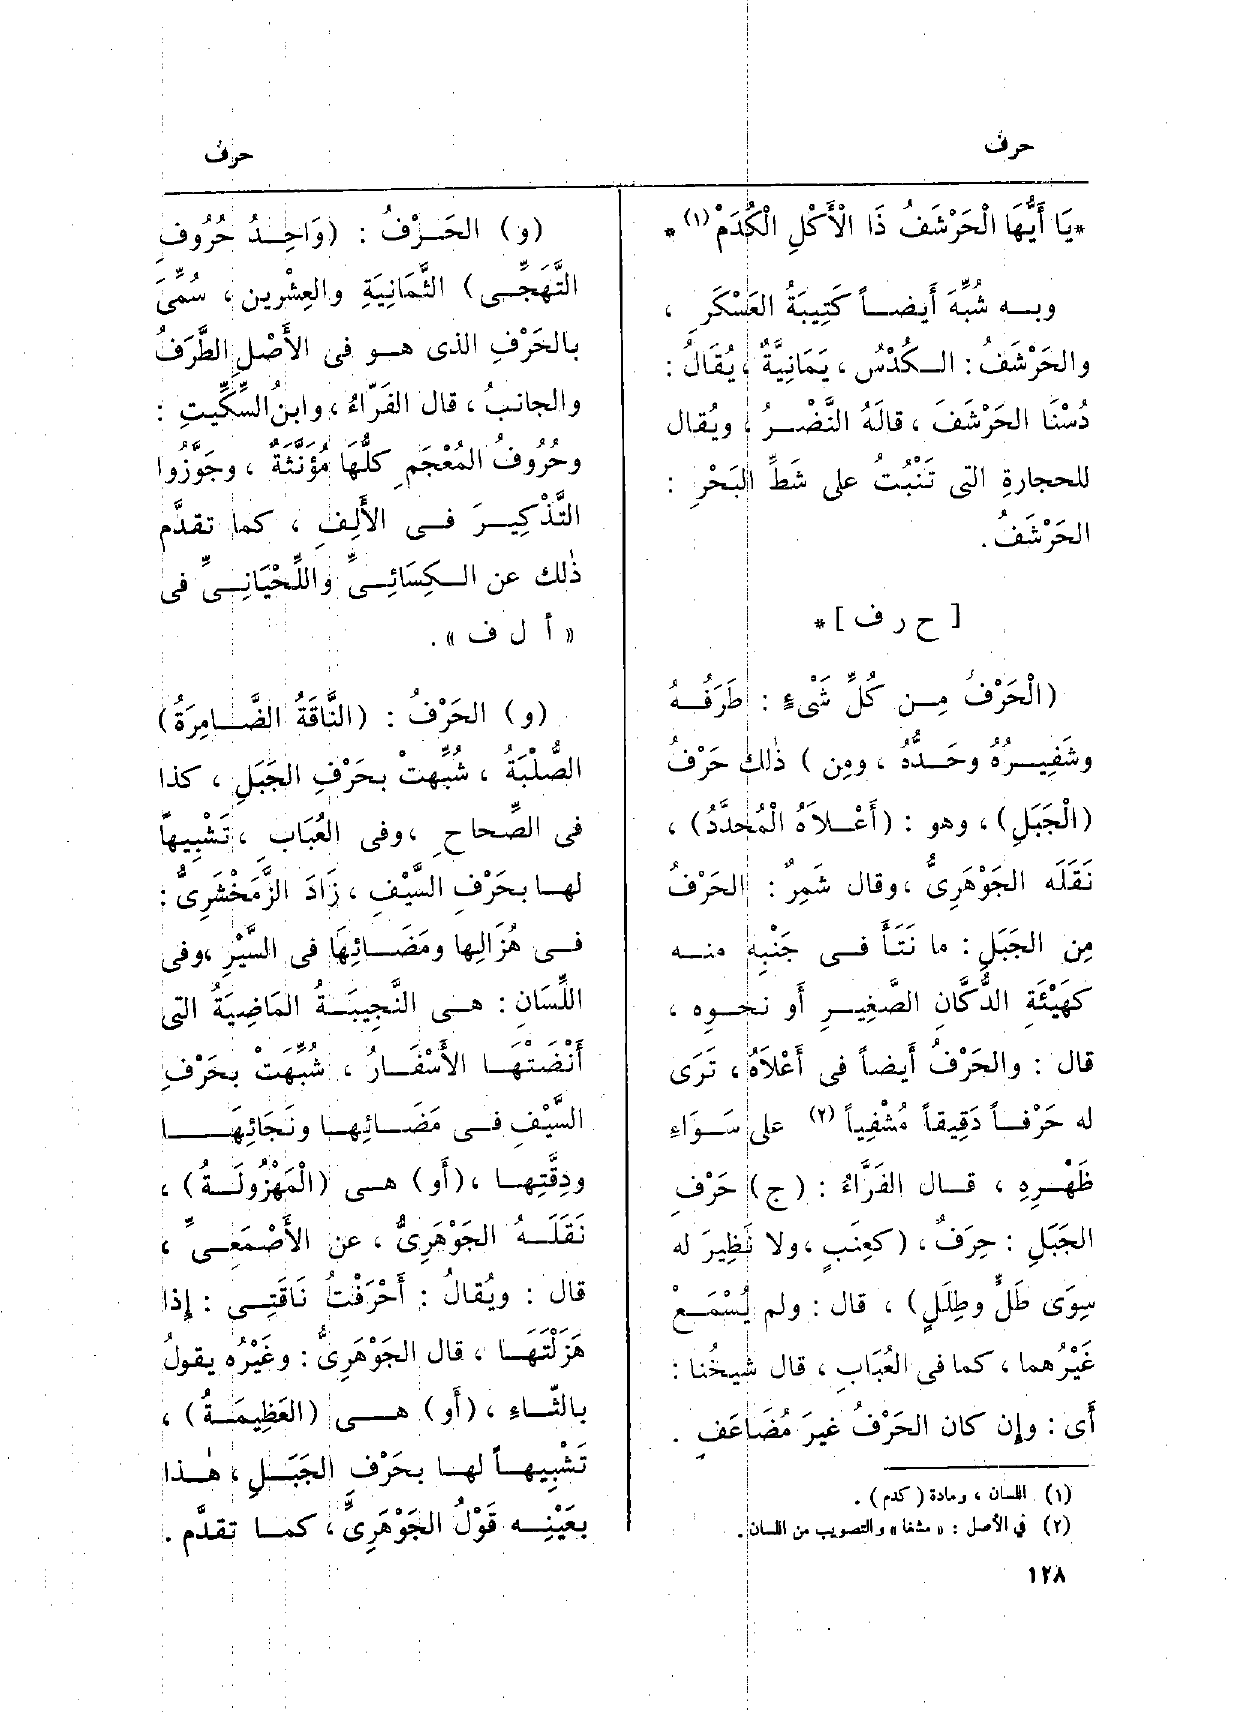 حرف
حرف
*يَا أَيُّهَا الْحَرْشَفُ ذَا الْأَكْلِ الْكُدَمْ (١) *
وبـه شُبِّهَ أَيضـاً كَتِيبَةُ العَسْكَرِ ،
والحَرْشَفُ : الـكُدْسُ ، يَمَانِيَّةٌ ، يُقَالُ :
دُسْنَا الحَرْشَفَ ، قالَهُ النَّضْـرُ ، ويُقال
للحجارةِ التى تَنْبُتُ على شَطِّ البَحْرِ :
الحَرْشَفُ .
[ ح ر ف ] *
(الْحَرْفُ مِـن كُلِّ شَىْءٍ : طَرَفُـهُ
وشَفِيـرُهُ وحَـدُّهُ ، ومِن ) ذٰلك حَرْفُ
(الْجَبَلِ) ، وهو : (أَعْـلاَهُ الْمُحَدَّدُ) ،
نَقَلَه الجَوْهَرِىُّ ، وقال شَمِرٌ : الحَرْفُ
مِن الجَبَلِ : ما نَتَأَ فـى جَنْبِهِ منـه
كهَيْئَةِ الدُّكَّانِ الصَّغِيـرِ أو نحـوِه ،
قال : والحَرْفُ أيضاً فى أَعْلاَهُ ، تَرَى
له حَرْفـاً دَقِيقاً مُشْفِياً (٢) على سَـوَاءِ
ظَهْـرِهِ ، قـال الفَرَّاءُ : (ج) حَرْفِ
الجَبَلِ : حِرَفٌ ، (كعِنَبٍ ، ولا نَظِيرَ له
سِوَى طَلٍّ وطِلَلٍ) ، قال : ولم يُسْمَـعْ
غَيْرُهما ، كما فى العُبَابِ ، قال شيخُنا :
أَى : وإن كان الحَرْفُ غيرَ مُضَاعَفٍ .
(١) اللسان ، ومادة (كدم) .
(٢) فى الأصل : «مشفا» والتصويب من اللسان .
١٢٨
(و) الحَـرْفُ : (وَاحِـدُ حُرُوفِ
التَّهَجِّـى) الثَّمَانِيَةِ والعِشْرِين ، سُمِّىَ
بالحَرْفِ الذى هـو فى الأَصْلِ الطَّرَفُ
والجانبُ ، قال الفَرّاءُ ، وابنُ السِّكِّيتِ :
وحُرُوفُ المُعْجَمِ كلُّهَا مُؤَنَّثَةٌ ، وجَوَّزُوا
التَّذْكِيـرَ فـى الأَلِفِ ، كما تقدَّم
ذٰلك عن الـكِسَائِـىِّ واللِّحْيَانِـىِّ فى
« أ ل ف » .
(و) الحَرْفُ : (النَّاقَةُ الضَّـامِرَةُ)
الصُّلْبَةُ ، شُبِّهتْ بحَرْفِ الجَبَلِ ، كذا
فى الصِّحاحِ ، وفى العُبَابِ ، تَشْبِيهاً
لهـا بحَرْفِ السَّيْفِ ، زَادَ الزَّمَخْشَرِىُّ :
فـى هُزَالِها ومَضَـائِهَا فى السَّيْرِ ، وفى
اللِّسَانِ : هـى النَّجِيبَـةُ المَاضِيَةُ التى
أَنْضَتْهَـا الأَسْفَـارُ ، شُبِّهَتْ بحَرْفِ
السَّيْفِ فـى مَضَـائِهـا ونَجَائِهَـا
ودِقَّتِهـا ، (أو) هـى (الْمَهْزُولَـةُ) ،
نَقَلَـهُ الجَوْهَرِىُّ ، عن الأَصْمَعِىِّ ،
قال : ويُقالُ : أَحْرَفْتُ نَاقَتِـى : إذا
هَزَلْتَهَـا ، قال الجَوْهَرِىُّ : وغَيْرُه يقولُ
بالثّـاءِ ، (أو) هـى (العَظِيمَـةُ) ،
تَشْبِيهـاً لهـا بحَرْفِ الجَبَـلِ ، هٰـذا
بعَيْنِـه قَوْلُ الجَوْهَرِىِّ ، كمـا تقدَّم .